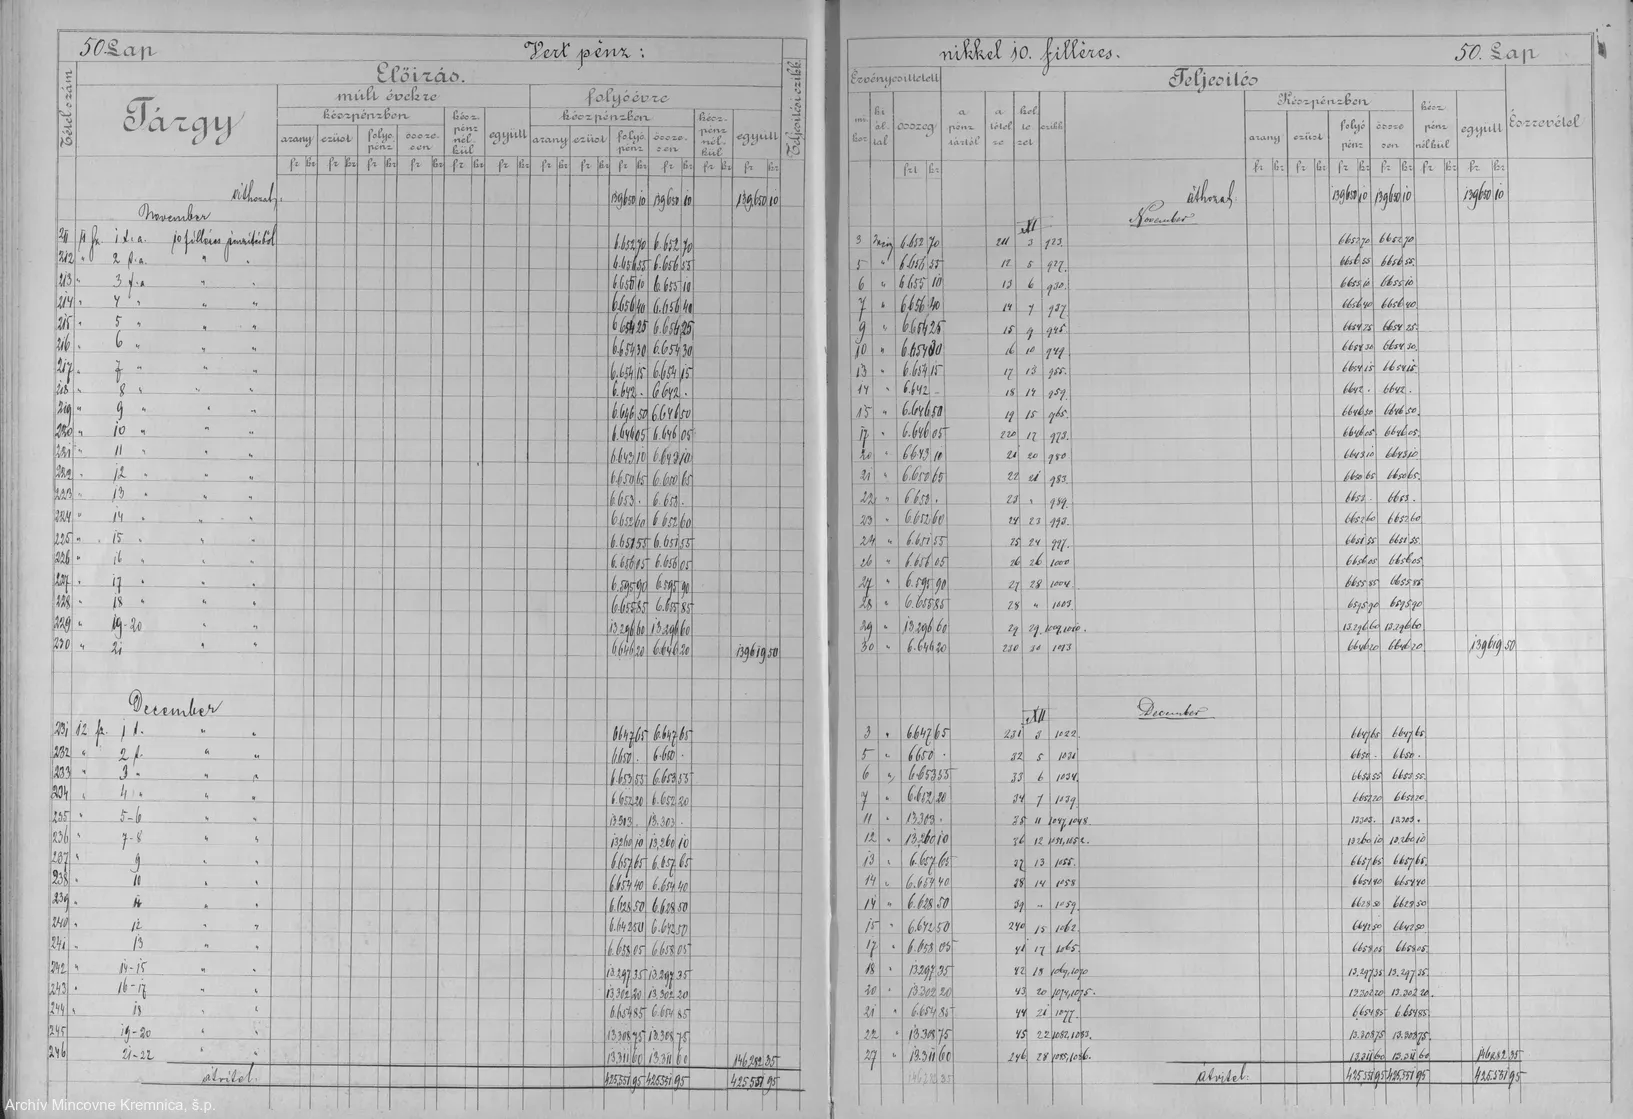 50. Lap Vert pénz: nikkel 10. filléres. 50. Lap
Tételszám Előirás. Teljesitési czikk Érvényesittetett Teljesités Észrevétel
Tárgy
múlt évekre folyóévre
készpénzben kész pénz nélkül együtt készpénzben kész pénz nélkül együtt Készpénzben kész pénz nélkül együtt
arany ezüst folyó pénz össze-sen arany ezüst folyó pénz össze-sen összeg a pénz tártól a tétel arany ezüst folyó pénz össze sen
áthozat: 139650 10 139650 10 139650 10 áthozat. 139650 10 139650 10 139650 10
November November
XI
211 10 filléres 6.652 70 6.652 70 3 6.652 70 211 3 923. 6652 70 6652 70
212 2 6.656 55 6.656 55 5 6.656 55 12 5 927. 6656 55 6656 55
213 3 6.655 10 6.655 10 6 6.655 10 13 6 930. 6655 10 6655 10
214 4 6.656 40 6.656 40 7 6.656 40 14 7 937. 6656 40 6656 40
215 5 6.654 25 6.654 25 9 6.654 25 15 9 945. 6654 25 6654 25
216 6 6.654 30 6.654 30 10 6.654 30 16 10 949. 6654 30 6654 30
217 7 6.654 15 6.654 15 13 6.654 15 17 13 955. 6654 15 6654 15
218 8 6.642 . 6.642 . 14 6.642 - 18 14 959. 6642 . 6642 .
219 9 6.646 50 6.646 50 15 6.646 50 19 15 965. 6646 50 6646 50
220 10 6.646 05 6.646 05 17 6.646 05 220 17 973. 6646 05 6646 05
221 11 6.643 10 6.643 10 20 6643 10 21 20 980 6643 10 6643 10
222 12 6.650 65 6.650 65 21 6.650 65 22 21 983. 6650 65 6650 65
223 13 6.653 . 6.653 . 22 6653 . 23 " 989. 6653 . 6653 .
224 14 6.652 60 6.652 60 23 6.652 60 24 23 993. 6652 60 6652 60
225 15 6.651 55 6.651 55 24 6.651 55 25 24 997. 6651 55 6651 55
226 16 6.656 05 6.656 05 26 6.656 05 26 26 1000 6656 05 6656 05
227 17 6.595 90 6.595 90 27 6.595 90 27 28 1004. 6655 85 6655 85
228 18 6.655 85 6.655 85 28 6.655 85 28 " 1005. 6595 90 6595 90
229 19-20 13.296 60 13.296 60 29 13.296 60 29 29 1009, 1010. 13.296 60 13.296 60
230 21 6.646 20 6.646 20 139619 50 30 6.646 20 230 30 1013 6646 20 6646 20 139619 50
December December
XII
231 12 1 6647 65 6.647 65 3 6647 65 231 3 1022. 6647 65 6647 65
232 2 6.650 . 6.650 . 5 6650 . 32 5 1031 6650 . 6650 .
233 3 6.653 55 6.653 55 6 6.653 55 33 6 1034. 6653 55 6653 55
234 4 6.652 20 6.652 20 7 6.652 20 34 7 1039. 6652 20 6652 20
235 5-6 13.303 . 13.303 . 11 13.303 . 35 11 1047, 1048. 13303. 13303.
236 7-8 13260 10 13.260 10 12 13.260 10 36 12 1051, 1052. 13260 10 13260 10
237 9 6657 65 6.657 65 13 6.657 65 37 13 1055. 6657 65 6657 65
238 10 6.654 40 6.654 40 14 6.654 40 38 14 1058 6654 40 6654 40
239 11 6.628 50 6.628 50 14 6.628 50 39 " 1059. 6628 50 6628 50
240 12 6.642 50 6.642 50 15 6.642 50 240 15 1062. 6642 50 6642 50
241 13 6.658 05 6.658 05 17 6.658 05 41 17 1065. 6658 05 6658 05
242 14-15 13.297 35 13.297 35 18 13297 35 42 18 1069, 1070 13.297 35 13.297 35
243 16-17 13.302 20 13.302 20 20 13.302 20 43 20 1074, 1075. 13302 20 13.302 20.
244 18 6.654 85 6.654 85 21 6.654 85 44 21 1077. 6654 85 6.654 85
245 19-20 13.308 75 13.308 75 22 13.308 75 45 22 1082, 1083. 13.308 75 13.308 75.
246 21-22 13.311 60 13.311 60 146282 35 27 13.311 60 246 28 1085, 1086. 13.311 60 13.311 60 146282 35
átvitel. 425551 95 425551 95 425551 95 146282 35 átvitel: 425551 95 425551 95 425551 95
Archív Mincovne Kremnica, š.p.